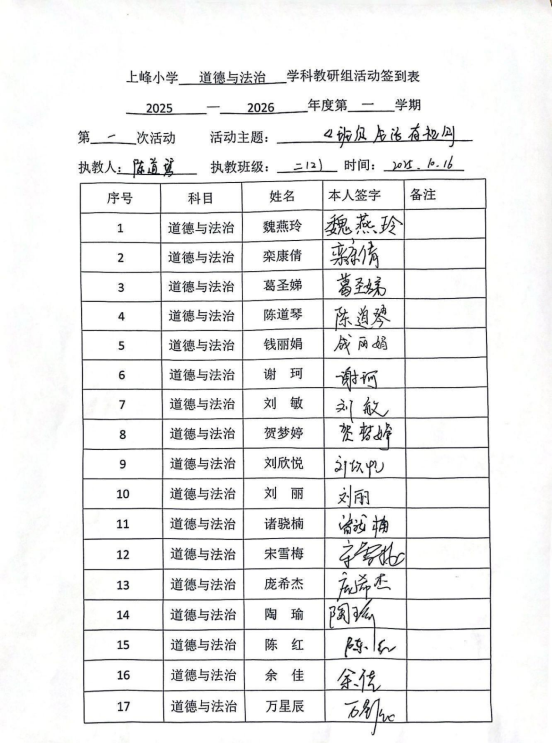 上峰小学 道德与法治 学科教研组活动签到表
2025 — 2026 年度第 一 学期
第 一 次活动 活动主题: 班级生活有规则
执教人: 陈道琴 执教班级: 二(2) 时间: 2025.10.16
序号 科目 姓名 本人签字 备注
1 道德与法治 魏燕玲 魏燕玲
2 道德与法治 栾康倩 栾康倩
3 道德与法治 葛圣娣 葛圣娣
4 道德与法治 陈道琴 陈道琴
5 道德与法治 钱丽娟 钱丽娟
6 道德与法治 谢 珂 谢珂
7 道德与法治 刘 敏 刘敏
8 道德与法治 贺梦婷 贺梦婷
9 道德与法治 刘欣悦 刘欣悦
10 道德与法治 刘 丽 刘丽
11 道德与法治 诸骁楠 诸骁楠
12 道德与法治 宋雪梅 宋雪梅
13 道德与法治 庞希杰 庞希杰
14 道德与法治 陶 瑜 陶瑜
15 道德与法治 陈 红 陈红
16 道德与法治 余 佳 余佳
17 道德与法治 万星辰